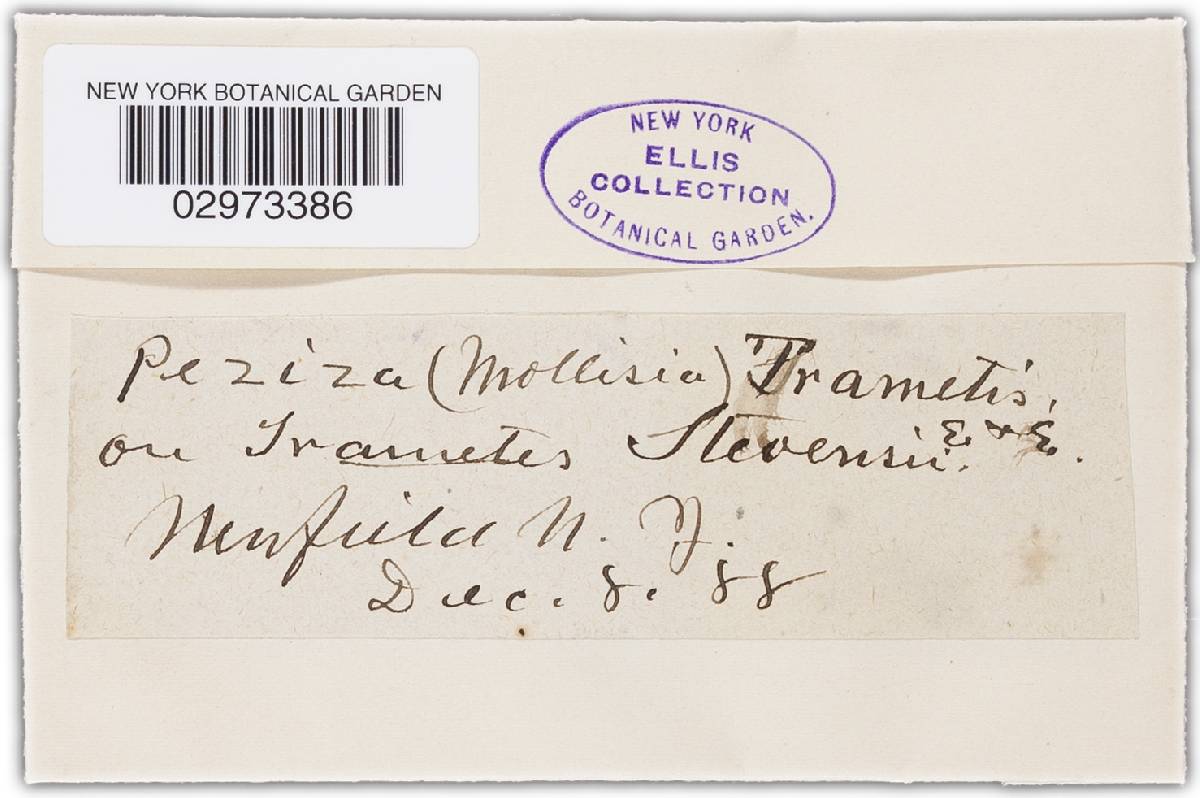 NEW YORK BOTANICAL GARDEN
02973386
NEW YORK
ELLIS
COLLECTION
BOTANICAL GARDEN.
Peziza (Mollisia) Trametis,
on Trametes Stevensii. E & E.
Newfield N. J.
Dec. 8. 88